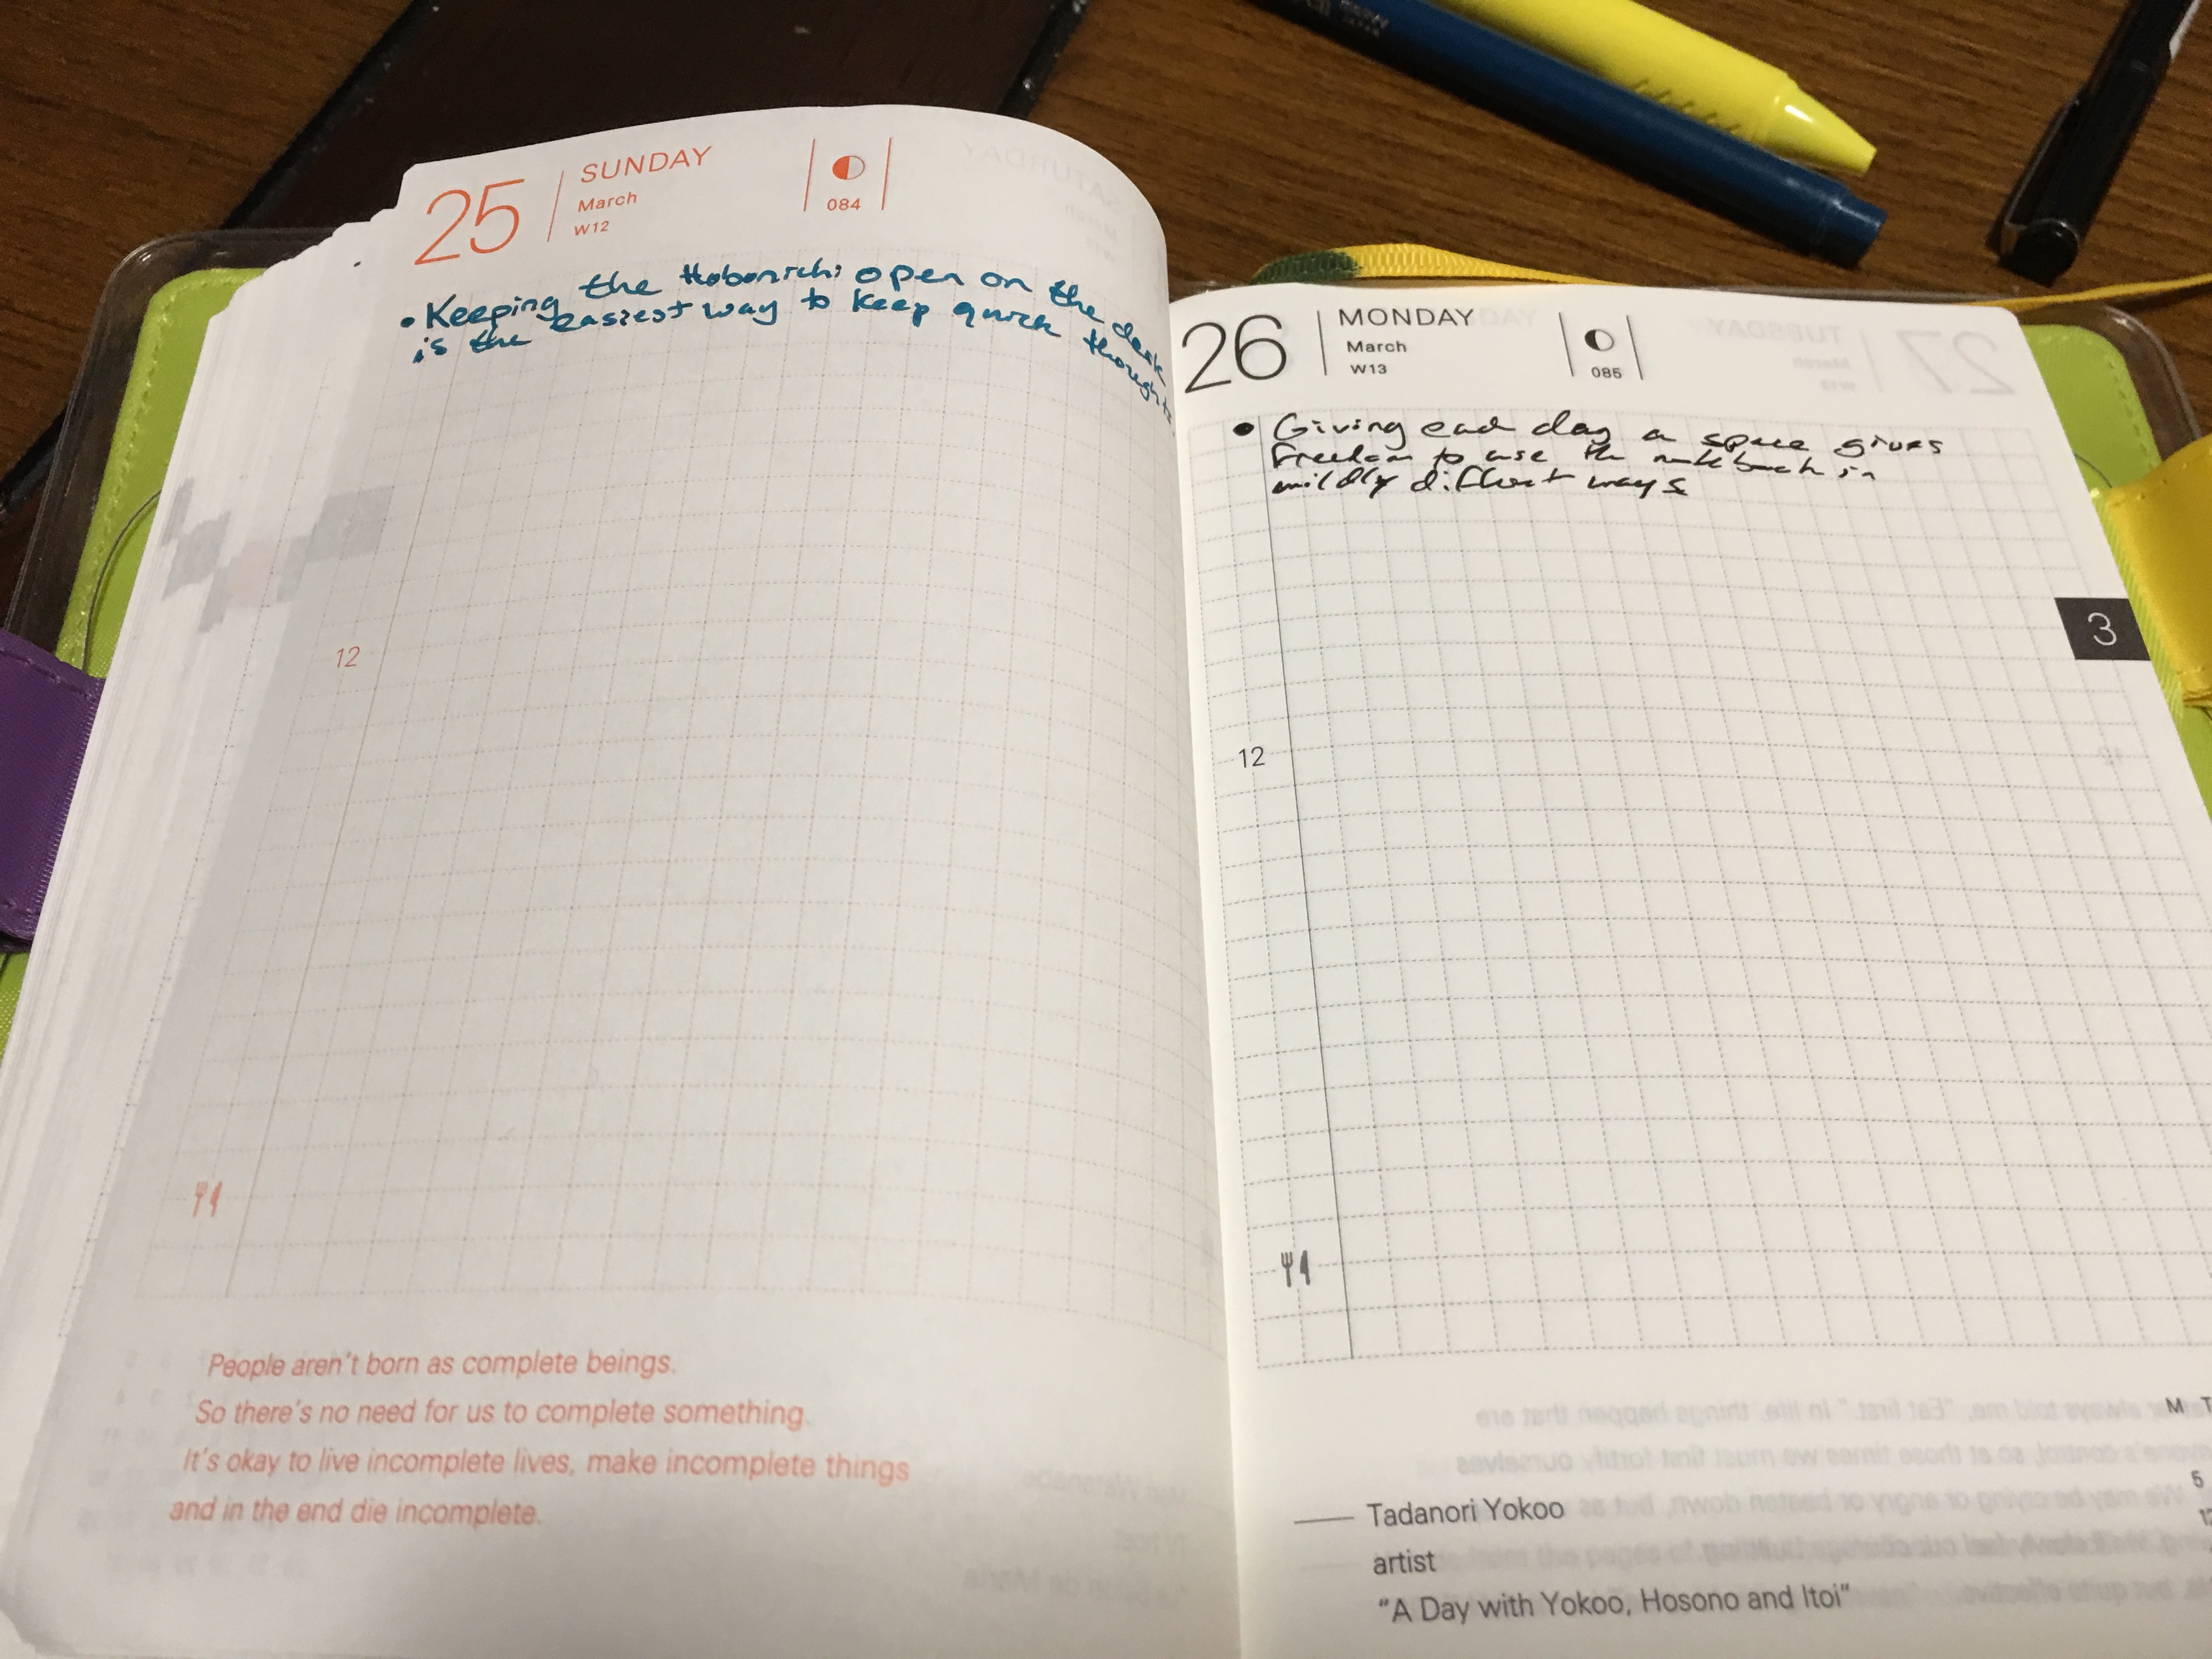 25
SUNDAY
March
W12
084
• Keeping the Hobonichi open on the desk
is the easiest way to keep quick thoughts
12
People aren't born as complete beings.
So there's no need for us to complete something.
It's okay to live incomplete lives, make incomplete things
and in the end die incomplete.
26
MONDAY
March
W13
085
• Giving each day a space gives
freedom to use the notebook in
mildly different ways
3
12
M T
5
12
Tadanori Yokoo
artist
"A Day with Yokoo, Hosono and Itoi"